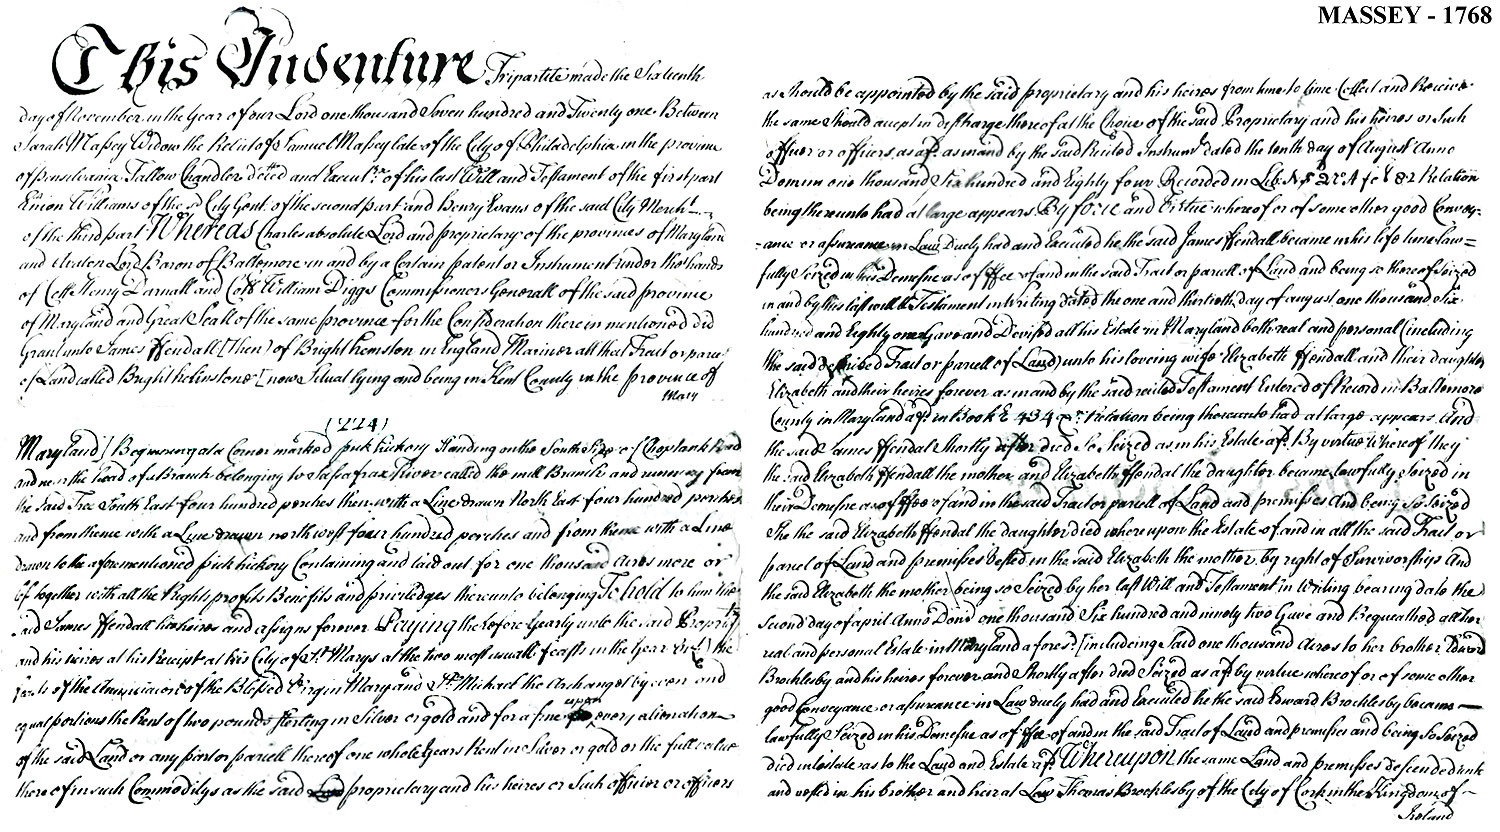 MASSEY - 1768
This Indenture Tripartite made the Sixteenth
day of November in the Year of our Lord one thousand Seven hundred and Twenty one Between
Sarah Massey Widow the Relict of Samuel Massey late of the City of Philadelphia in the province
of pensilvania Tallow Chandler deced and Execut.rx of his last Will and Testament of the first part
Enion Williams of the sd City Gent. of the second part and Henry Evans of the said City Mercht
of the third part Whereas Charles absolute Lord and proprietary of the provinces of Maryland
and Avalon Lord Baron of Baltemore in and by a Certain patent or Instrument under the hands
of Coll Henry Darnall and Coll William Diggs Commissioners Generall of the said province
of Maryland and Great Seall of the same province for the Consideration there in mentioned did
Grant unto James ffendall [Then] of Bright hemston in England Mariner all that Tract or parcel
of Land called Bright helmstone [now Situat lying and being in Kent County in the province of
Mary
(224)
Maryland] Beginning at a Corner marked pick hickory Standing on the South Side of Choptank Road
and near the head of a Branch belonging to Sassafrax River called the mill Branch and running from
the said Tree South East four hundred perches then with a Line drawn North East four hundred perches
and from thence with a Line drawn north west four hundred perches and from thence with a Line
drawn to the aforementioned pick hickory Containing and laid out for one thousand Acres more or
less together with all the Rights profits Benefits and priviledges thereunto belonging To hold to him the
said James ffendall his heires and assigns forever Paying therefore Yearly unto the said Propriety
and his heires at his Receipt at his City of St. Marys at the two most usuall feasts in the Year the
feasts of the Annunciation of the Blessed Virgin Mary and St. Michael the Archangel by even and
equal portions the Rent of two pounds sterling in Silver or gold and for a fine upon every alienation
of the said Land or any part or parcell thereof one whole Years Rent in Silver or gold or the full value
thereof in such Commoditys as the said proprietary and his heires or Such officer or officers
as Should be appointed by the said proprietary and his heires from time to time Collect and Receive
the same Should accept in discharge thereof at the Choice of the said Proprietary and his heires or Such
officer or officers as afd. as in and by the said Recited Instrumt dated the tenth day of August Anno
Domini one thousand Six hundred and Eighty four Recorded in Lib. Relation
being thereunto had at large appears By force and Virtue whereof or of some other good Convey-
-ance or assurance in Law Duely had and Executed he the said James ffendall became in his life time law=
fully Seized in his Demesne as of ffee of and in the said Tract or parcell of Land and being so thereof Seized
in and by his last will & Testament in Writing dated the one and thirtieth day of august one thousand Six
hundred and Eighty one Gave and Devised all his Estate in Maryland both real and personal (including
the said described Tract or parcell of Land) unto his loveing wife Elizabeth ffendall and their daughter
Elizabeth and their heires forever as in and by the said recited Testament Entered of Record in Baltemore
County in Maryland afd. in Book E 434 Relation being thereunto had at large appears And
the said James ffendal Shortly after died So Seized as in his Estate afd. By virtue Whereof They
the said Elizabeth ffendall the mother and Elizabeth ffendal the daughter became Lawfully Seized in
their Demesne as of ffee of and in the said Tract or parcell of Land and premisses And being So Seized
She the said Elizabeth ffendal the daughter died where upon the Estate of and in all the said Tract or
parcel of Land and premisses Vested in the said Elizabeth the mother by right of Survivorships And
the said Elizabeth the mother being so Seized by her last Will and Testament in Writing bearing date the
second day of april Anno Domi one thousand Six hundred and ninety two Gave and Bequeathed all her
real and personal Estate in Maryland aforesd. [including Said one thousand Acres to her brother Edward
Brocklesby and his heires forever and Shortly after died Seized as afd. by virtue whereof or of some other
good Conveyance or assurance in Law duely had and Executed he the said Edward Brocklesby became
lawfully Seized in his Demesne as of ffee of and in the said Tract of Land and premisses and being So Seized
died intestate as to the Land and Estate afd. Whereupon the same Land and premisses descended unto
and vested in his brother and heir at Law Thomas Brocklesby of the City of Cork in the Kingdom of
Ireland